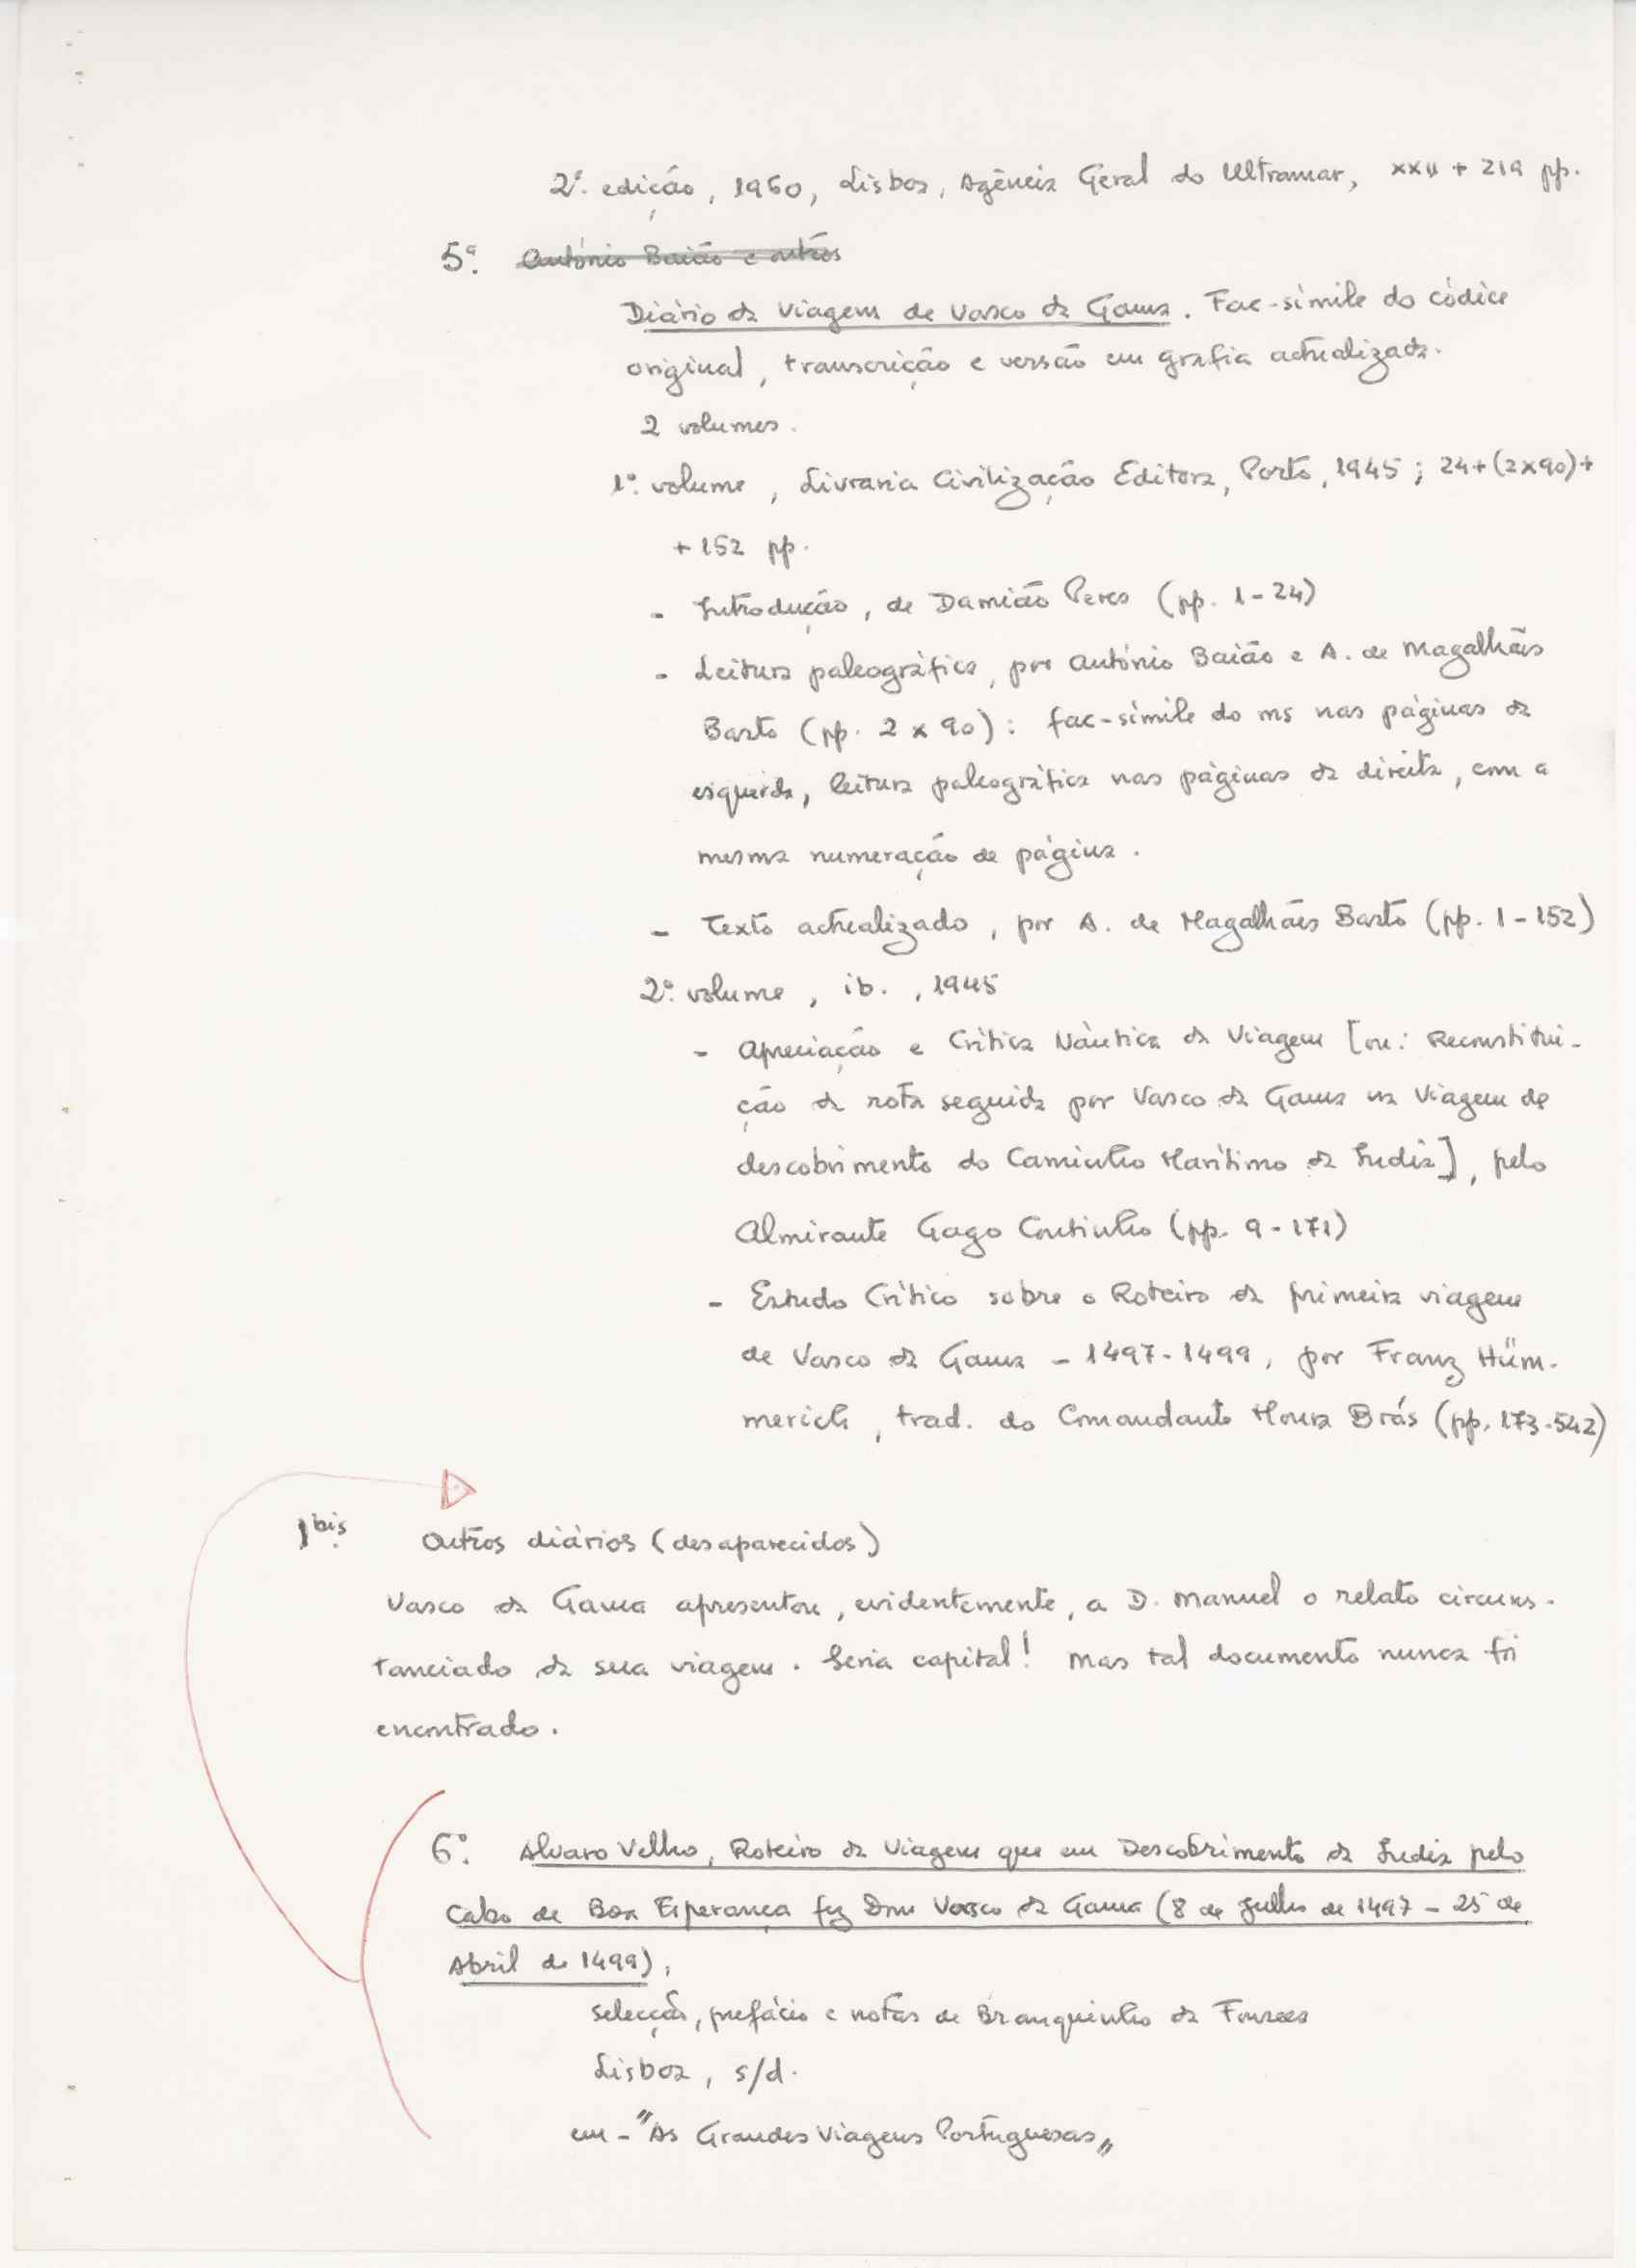 2ª. edição, 1960, Lisboa, Agência Geral do Ultramar, XXII + 219 pp.
5ª. António Baião e outros
Diário da Viagem de Vasco da Gama. Fac-símile do códice
original, transcrição e versão em grafia actualizada.
2 volumes.
1º. volume, Livraria Civilização Editora, Porto, 1945; 24+(2x90)+
+152 pp.
- Introdução, de Damião Peres (pp. 1-24)
- Leitura paleográfica, por António Baião e A. de Magalhães
Basto (pp. 2 x 90): fac-símile do ms nas páginas da
esquerda, leitura paleográfica nas páginas da direita, com a
mesma numeração de página.
- Texto actualizado, por A. de Magalhães Basto (pp. 1-152)
2º. volume, ib., 1945
- Apreciação e Crítica Náutica da Viagem [ou: Reconstitui-
ção da rota seguida por Vasco da Gama na Viagem de
descobrimento do Caminho Marítimo da Índia], pelo
Almirante Gago Coutinho (pp. 9-171)
- Estudo Crítico sobre o Roteiro da primeira viagem
de Vasco da Gama - 1497-1499, por Franz Hüm-
merich, trad. do Comandante Moura Brás (pp. 173-542)
1bis. Outros diários (desaparecidos)
Vasco da Gama apresentou, evidentemente, a D. Manuel o relato circuns-
tanciado da sua viagem. Seria capital! Mas tal documento nunca foi
encontrado.
6º. Alvaro Velho, Roteiro da Viagem que em Descobrimento da Índia pelo
Cabo de Boa Esperança fez Dom Vasco da Gama (8 de Julho de 1497 - 25 de
Abril de 1499),
selecção, prefácio e notas de Branquinho da Fonseca
Lisboa, s/d.
em - "As Grandes Viagens Portuguesas"